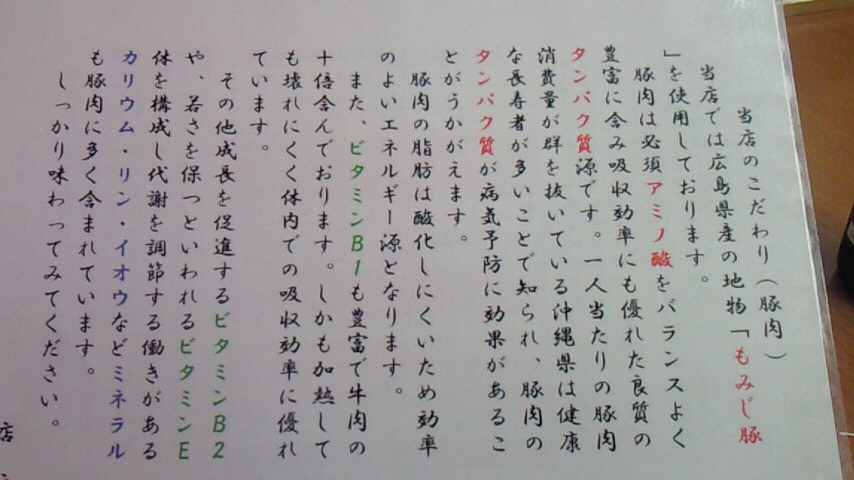 当店のこだわり（豚肉）
当店では広島県産の地物「もみじ豚
」を使用しております。
豚肉は必須アミノ酸をバランスよく
豊富に含み吸収効率にも優れた良質の
タンパク質源です。一人当たりの豚肉
消費量が群を抜いている沖縄県は健康
な長寿者が多いことで知られ、豚肉の
タンパク質が病気予防に効果があるこ
とがうかがえます。
豚肉の脂肪は酸化しにくいため効率
のよいエネルギー源となります。
また、ビタミンB1も豊富で牛肉の
十倍含んでおります。しかも加熱して
も壊れにくく体内での吸収効率に優れ
ています。
その他成長を促進するビタミンB2
や、若さを保つといわれるビタミンE
体を構成し代謝を調節する働きがある
カリウム・リン・イオウなどミネラル
も豚肉に多く含まれています。
しっかり味わってみてください。
店